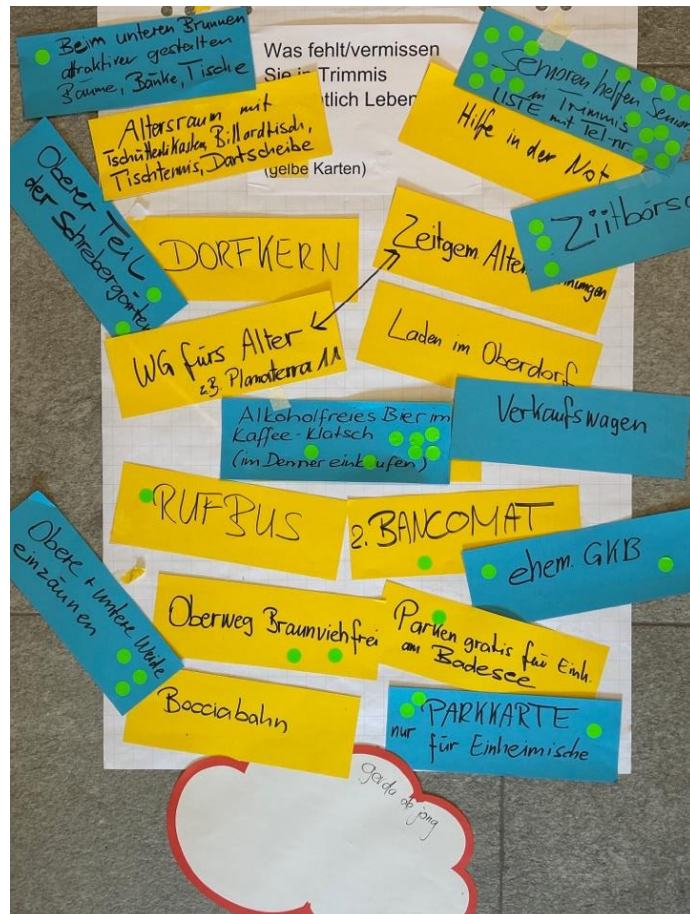 Beim unteren Brunnen
attraktiver gestalten
Bäume, Bänke, Tische
Was fehlt/vermissen
Sie in Trimmis
tlich Leben
(gelbe Karten)
Senioren helfen Senior
in Trimmis
LISTE mit Tel-nr.
Altersraum mit
Tschütterlikasten, Billardtisch,
Tischtennis, Dartscheibe
Hilfe in der Not
Oberer Teil
der Schrebergärten
Ziitbörse
DORFKERN
Zeitgem. Alte nungen
WG fürs Alter
z.B. Planaterra 11
Laden im Oberdorf
Alkoholfreies Bier im
Kaffee-Klatsch
(im Denner einkaufen)
Verkaufswagen
RUFBUS
2. BANCOMAT
ehem. GKB
Obere + untere Weide
einzäunen
Oberweg Braunviehfrei
Parken gratis für Einh.
am Badesee
Bocciabahn
PARKKARTE
nur für Einheimische
gerda de jong